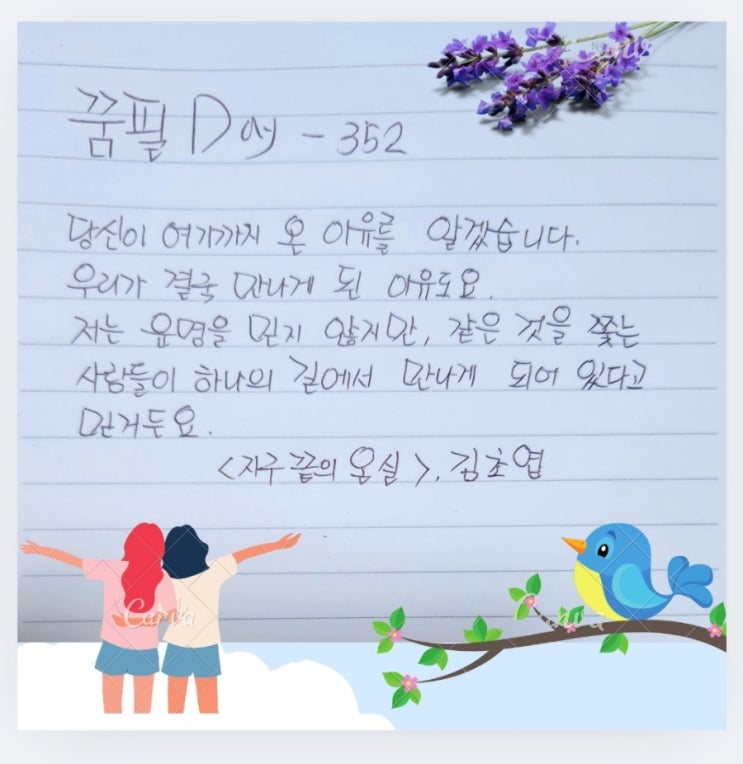 꿈필 Day - 352
당신이 여기까지 온 이유를 알겠습니다.
우리가 결국 만나게 된 이유도요.
저는 운명을 믿지 않지만, 같은 것을 쫓는
사람들이 하나의 길에서 만나게 되어 있다고
믿거든요.
<지구 끝의 온실>, 김초엽
Canva